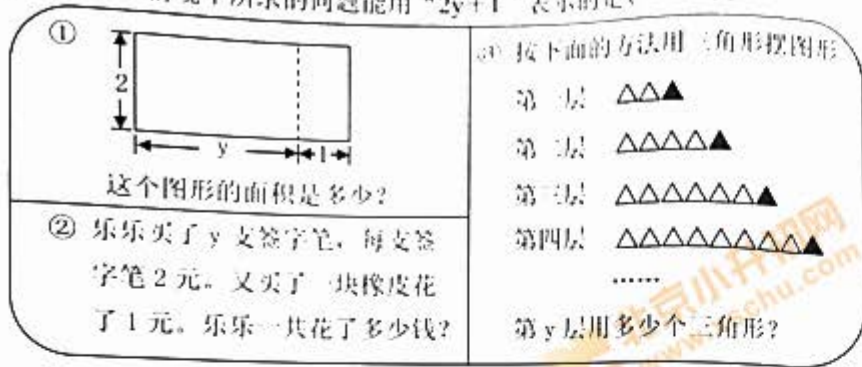 所求的问题能用“2y+1”表示的是
①
2
y
1
这个图形的面积是多少?
② 乐乐买了 y 支签字笔,每支签
字笔 2 元。又买了一块橡皮花
了 1 元。乐乐一共花了多少钱?
按下面的方法用三角形摆图形
第一层 △△▲
第二层 △△△△▲
第三层 △△△△△△▲
第四层 △△△△△△△△▲
……
第 y 层用多少个三角形?
北京小升初网